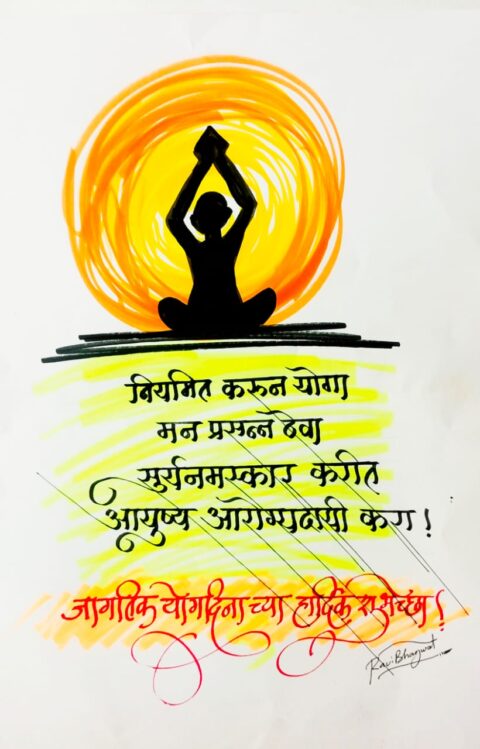 नियमित करून योगा
मन प्रसन्न ठेवा
सुर्यनमस्कार करीत
आयुष्य आरोग्यदायी करा !
जागतिक योगदिनाच्या हार्दिक शुभेच्छा !
Ravi Bhagwat